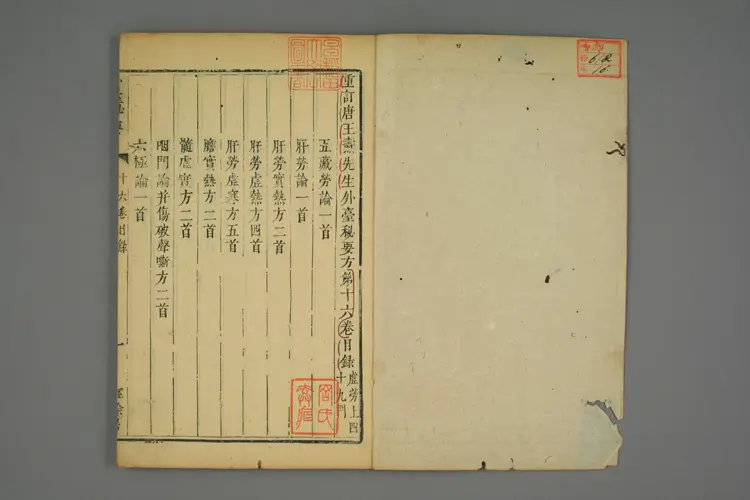 重訂唐王燾先生外臺秘要方第十六卷目錄
虛勞上四
十九門
五藏勞論一首
肝勞論一首
肝勞實熱方二首
肝勞虛熱方四首
肝勞虛寒方五首
膽實熱方二首
髓虛實方二首
咽門論并傷破聲嘶方二首
六極論一首
十六卷目錄
一